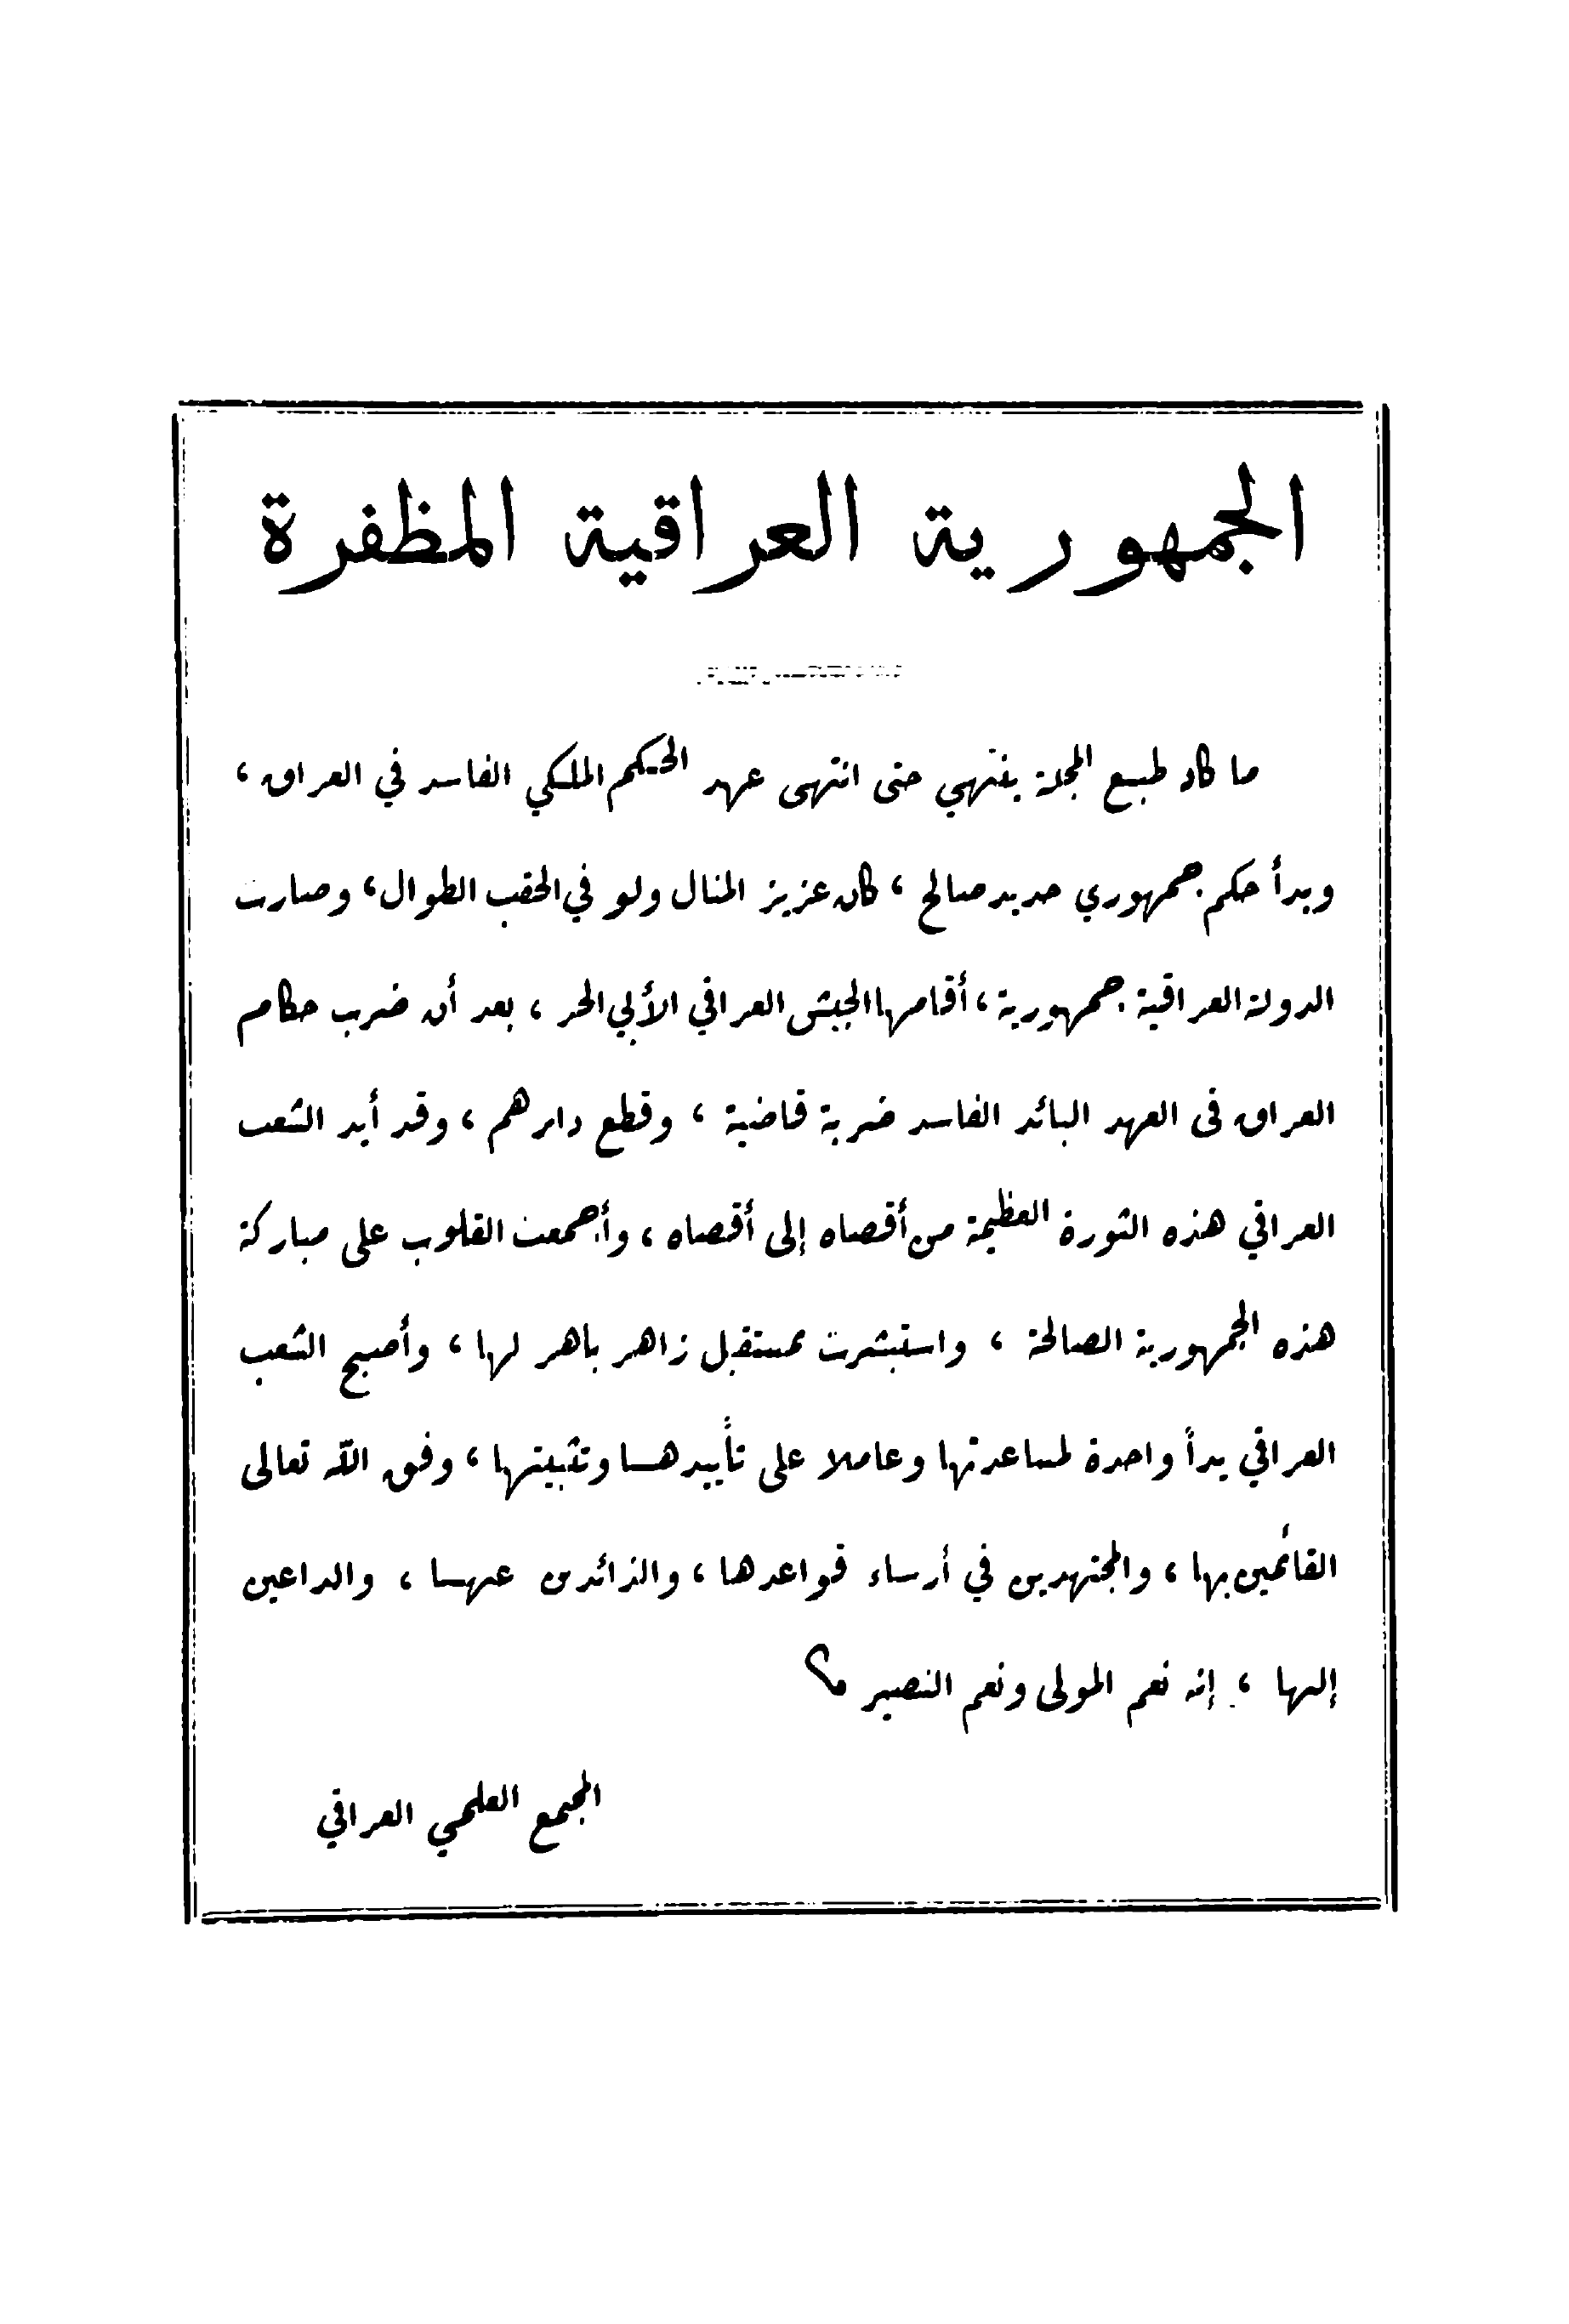 الجمهورية العراقية المظفرة
ما كاد طبع المجلة ينتهي حتى انتهى عهد الحكم الملكي الفاسد في العراق ،
وبدأ حكم جمهوري جديد صالح ، كان عزيز المنال ولو في الحقب الطوال ، وصارت
الدولة العراقية جمهورية ، أقامها الجيش العراقي الأبي الحر ، بعد أن ضرب حكام
العراق فى العهد البائد الفاسد ضربة قاضية ، وقطع دابرهم ، وقد أيد الشعب
العراقي هذه الثورة العظيمة من أقصاه إلى أقصاه ، وأجمعت القلوب على مباركة
هذه الجمهورية الصالحة ، واستبشرت بمستقبل زاهر باهر لها ، وأصبح الشعب
العراقي يداً واحدة لمساعدتها وعاملا على تأييدها وتثبيتها ، وفق الله تعالى
القائمين بها ، والمجتهدين في أرساء قواعدها ، والذائدين عنها ، والداعين
إليها ، إنه نعم المولى ونعم النصير
المجمع العلمي العراقي